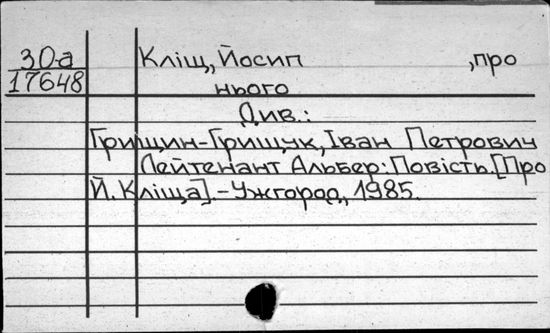 30-а Кліщ, Йосип , про
17648 нього
Див.:
Грищин-Грищук, Іван Петрович
Лейтенант Альбер: Повість. [Про
Й. Кліща]. - Ужгород, 1985.